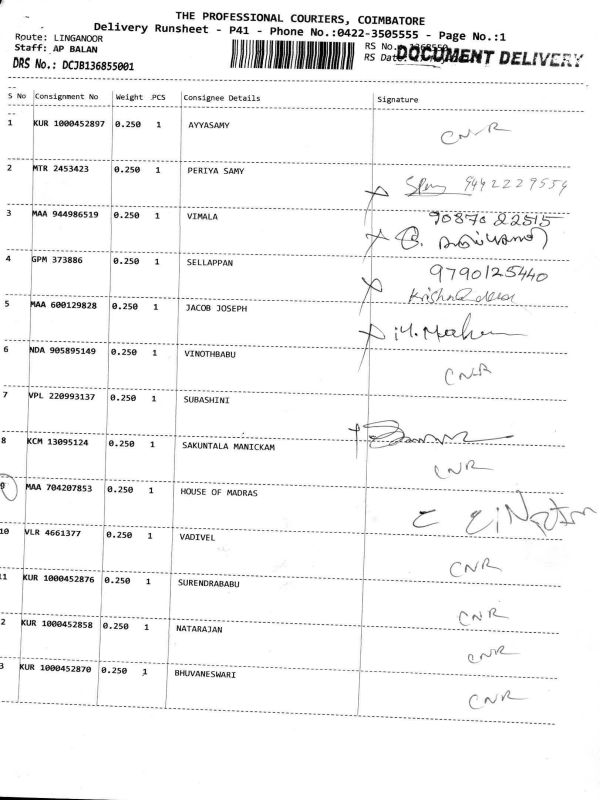 THE PROFESSIONAL COURIERS, COIMBATORE
Delivery Runsheet - P41 - Phone No.:0422-3505555 - Page No.:1
Route: LINGANOOR
Staff: AP BALAN
DRS No.: DCJB136855001
RS No.
RS Date:
DOCUMENT DELIVERY
S No Consignment No Weight PCS Consignee Details Signature
1 KUR 1000452897 0.250 1 AYYASAMY CNR
2 MTR 2453423 0.250 1 PERIYA SAMY 9442229554
3 MAA 944986519 0.250 1 VIMALA 9087022515
4 GPM 373886 0.250 1 SELLAPPAN 9790125440
5 MAA 600129828 0.250 1 JACOB JOSEPH
6 NDA 905895149 0.250 1 VINOTHBABU CNR
7 VPL 220993137 0.250 1 SUBASHINI
8 KCM 13095124 0.250 1 SAKUNTALA MANICKAM CNR
9 MAA 704207853 0.250 1 HOUSE OF MADRAS
10 VLR 4661377 0.250 1 VADIVEL CNR
11 KUR 1000452876 0.250 1 SURENDRABABU CNR
2 KUR 1000452858 0.250 1 NATARAJAN CNR
3 KUR 1000452870 0.250 1 BHUVANESWARI CNR